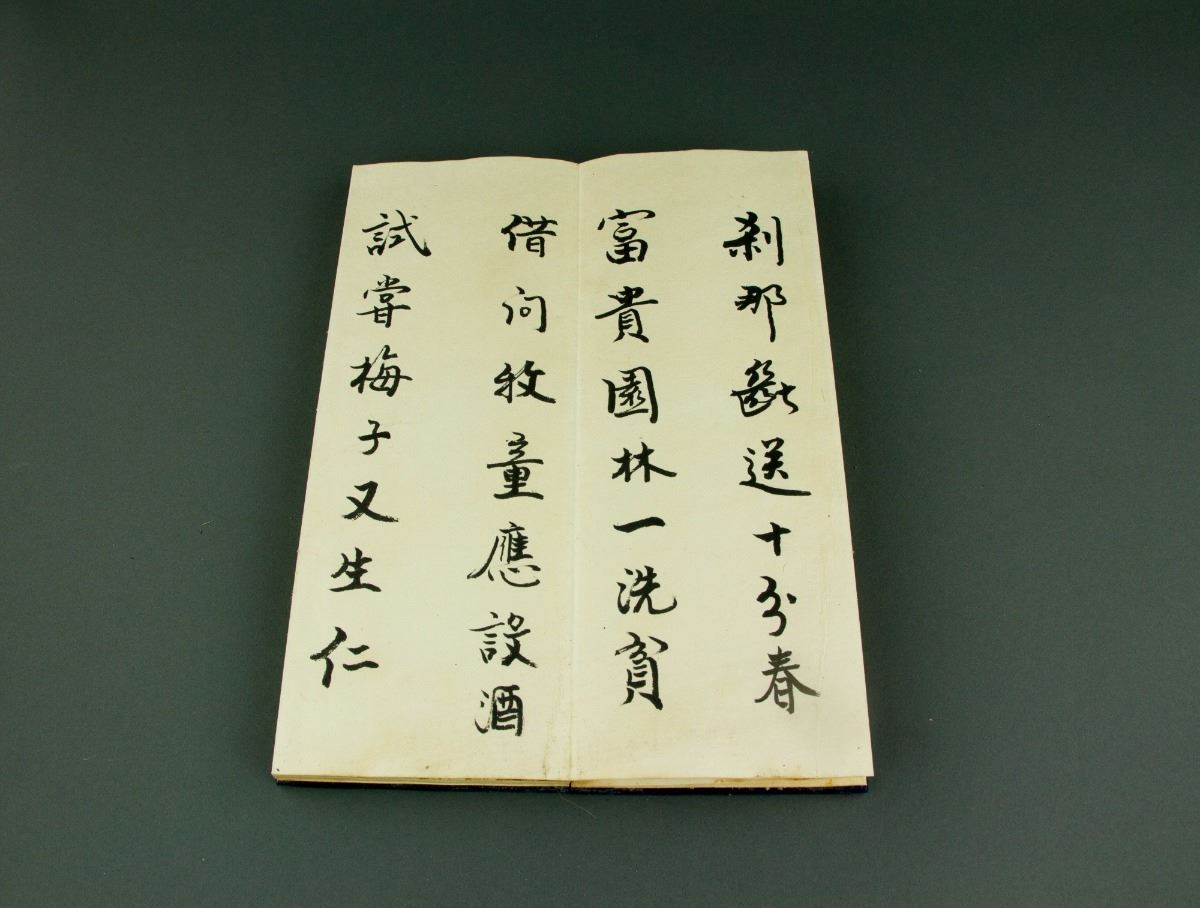 刹那斷送十分春
富貴園林一洗貧
借问牧童應設酒
試甞梅子又生仁